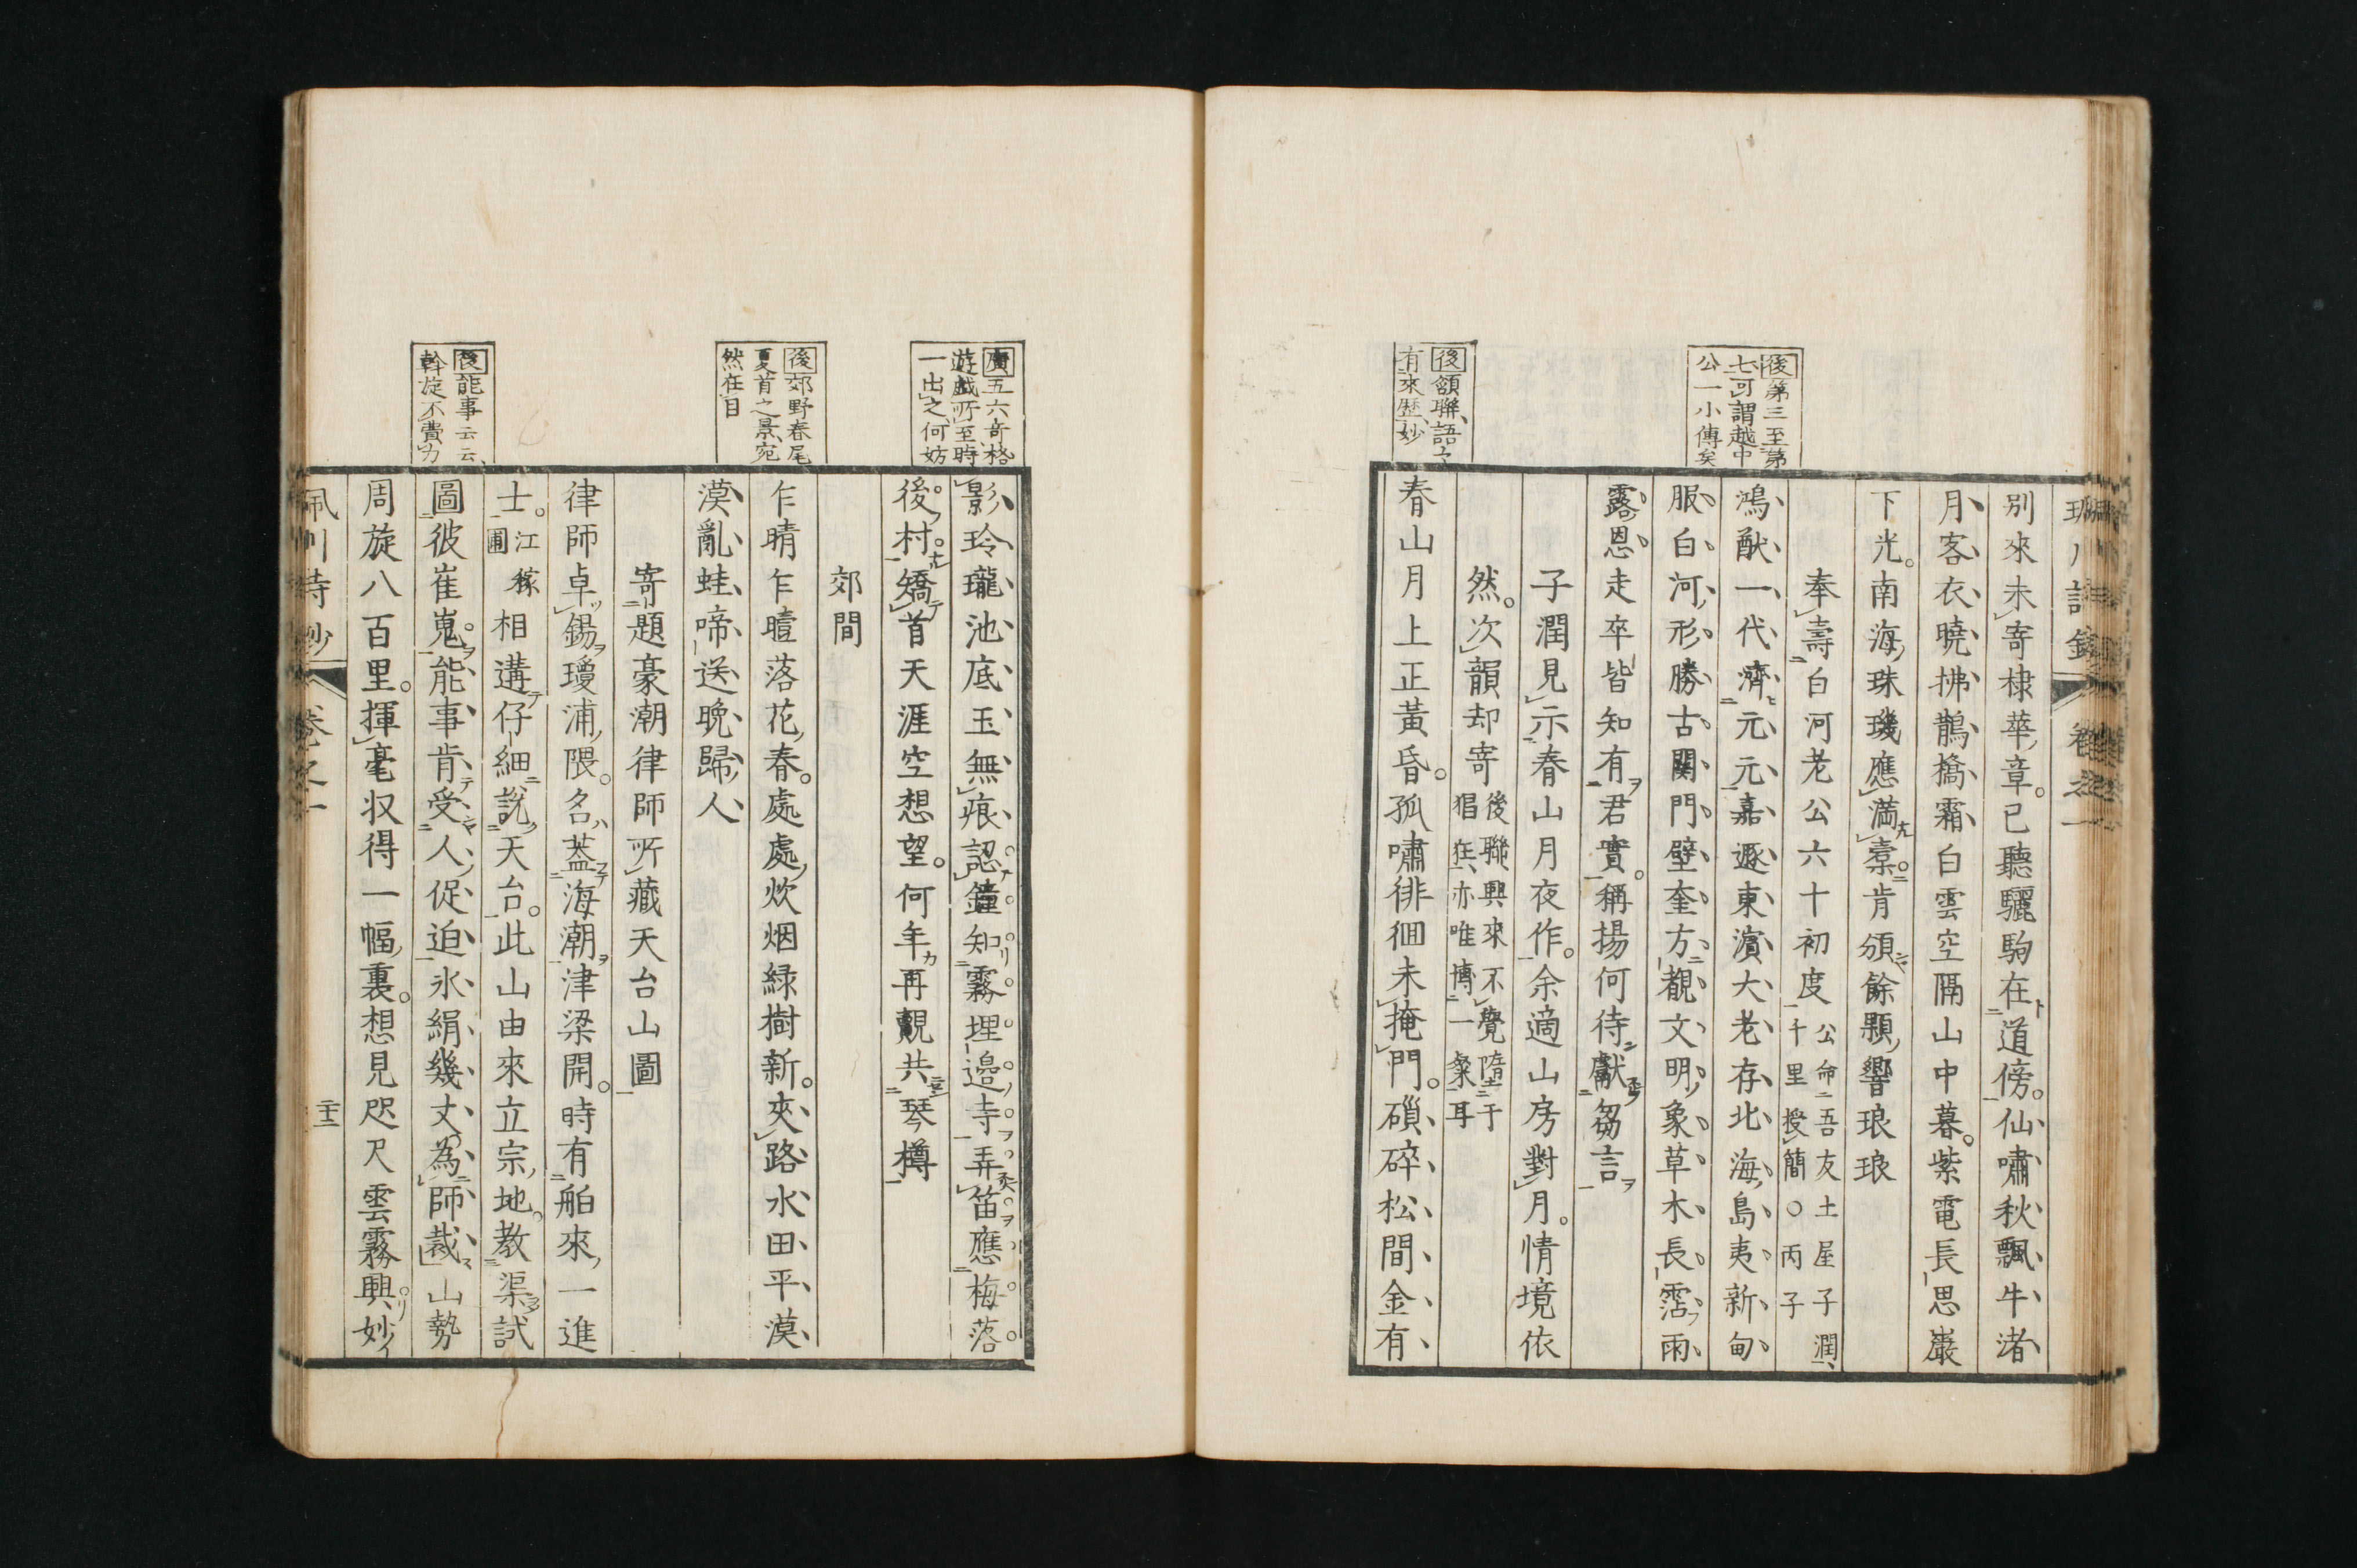 後第三至第
七可謂越中
公一小傳矣
後頷聯語々
有來歷妙
別來未寄棣華章已聽驪駒在道傍仙嘯秋飄牛渚
月客衣曉拂鵲橋霜白雲空隔山中暮紫電長思巖
下光南海珠璣應滿橐肯頒餘顆響琅琅
奉壽白河老公六十初度
公命吾友土屋子潤
千里授簡○丙子
鴻猷一代濟元元嘉遯東濱大老存北海島夷新甸
服白河形勝古關門壁奎方覩文明象草木長霑雨
露恩走卒皆知有君實稱揚何待獻芻言
子潤見示春山月夜作余適山房對月情境依
然次韻却寄
後聯興來不覺墮于
猖狂亦唯博一粲耳
春山月上正黃昏孤嘯徘徊未掩門碅碎松間金有
廣五六奇格
遊戲所至時
一出之何妨
後郊野春尾
夏首之景宛
然在目
後能事云云
斡旋不費力
影玲瓏池底玉無痕認鐘知霧埋邊寺弄笛應梅落
後村矯首天涯空想望何年再覿共琴樽
郊間
乍晴乍曀落花春處處炊烟緑樹新夾路水田平漠
漠亂蛙啼送晚歸人
寄題豪潮律師所藏天台山圖
律師卓錫瓊浦隈名蓋海潮津梁開時有舶來一進
士
江稼
圃
相遘仔細說天台此山由來立宗地教渠試
圖彼崔嵬能事肯受人促迫氷絹幾丈為師裁山勢
周旋八百里揮毫収得一幅裏想見咫尺雲霧興妙
卷之一
二十二